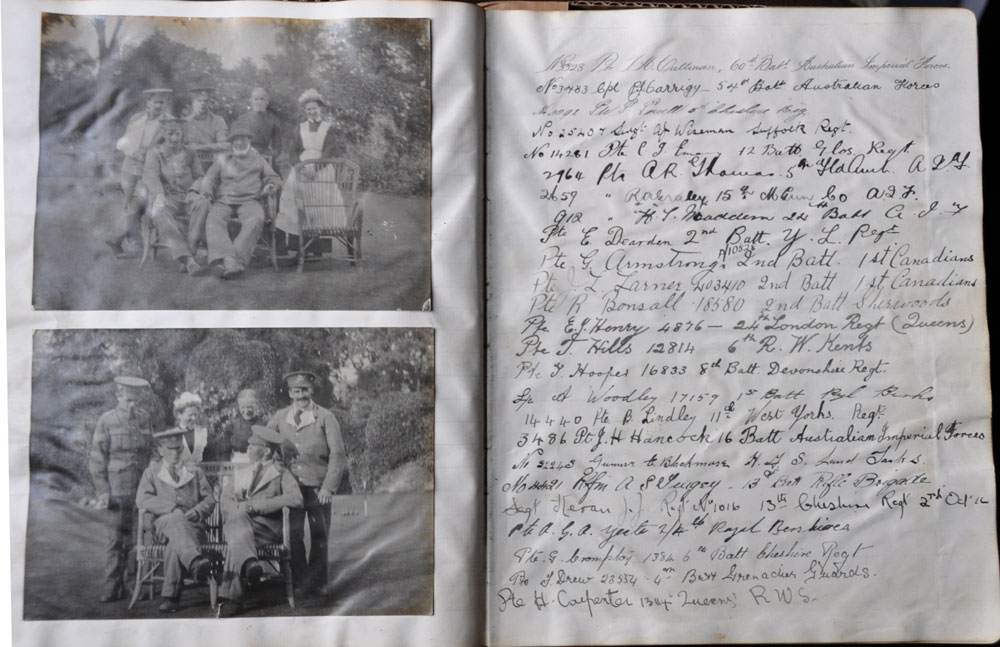 No 3328 Pte Cullinan, 60th Batt Australian Imperial Forces.
No 3483 Cpl Carrigy - 54th Batt Australian Forces
Pte of Cheshire Regt
No 25407 Wiseman Suffolk Regt.
No 14281 Pte C J 12 Batt Glos. Regt
2964 Pte A R. Thomas. 5th Fld Amb. A I F
2659 " 15th M Gun Co A.I.F.
912 " H. T. Maddern 24th Batt A I F
Pte E. Dearden 2nd Batt. Y. L. Regt
Pte G. Armstrong. A10526 2nd Batt. 1st Canadians
Pte J. L. Larner 403410 2nd Batt 1st Canadians
Pte R Bonsall 18580 2nd Batt Sherwoods
Pte E.J. Henry 4876 - 24th London Regt (Queens)
Pte T. Hills 12814 6th R. W. Kents
Pte F Hooper 16833 8th Batt. Devonshire Regt.
A Woodley 17159 1st Batt Ryl Berks
14440 Pte B. Lindley 11th West Yorks. Regt
3486 Pt J. H Hancock 16 Batt Australian Imperial Forces
No Gunner E Blackmore H. S. Land Tanks.
No 4421 Rfm A S 13th Batt Rifle Brigade
Sgt J. J. Regt No 1016 13th Cheshire Regt 2nd Oct 16
Pte A. G. A. 2/4th Royal Berkshires
Pte. G. Crompton 1334 6th Batt Cheshire Regt
Pte J Drew 23554 4th Batt Grenadier Guards.
Pte H. Carpenter Queens R W S.